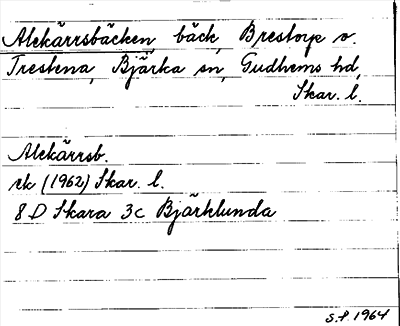 Alekärrsbäcken, bäck, Brestorp o.
Trestena, Bjärka sn, Gudhems hd,
Skar. l.
Alekärrsb.
ek (1962) Skar. l.
8 D Skara 3c Bjärklunda
S.P 1964